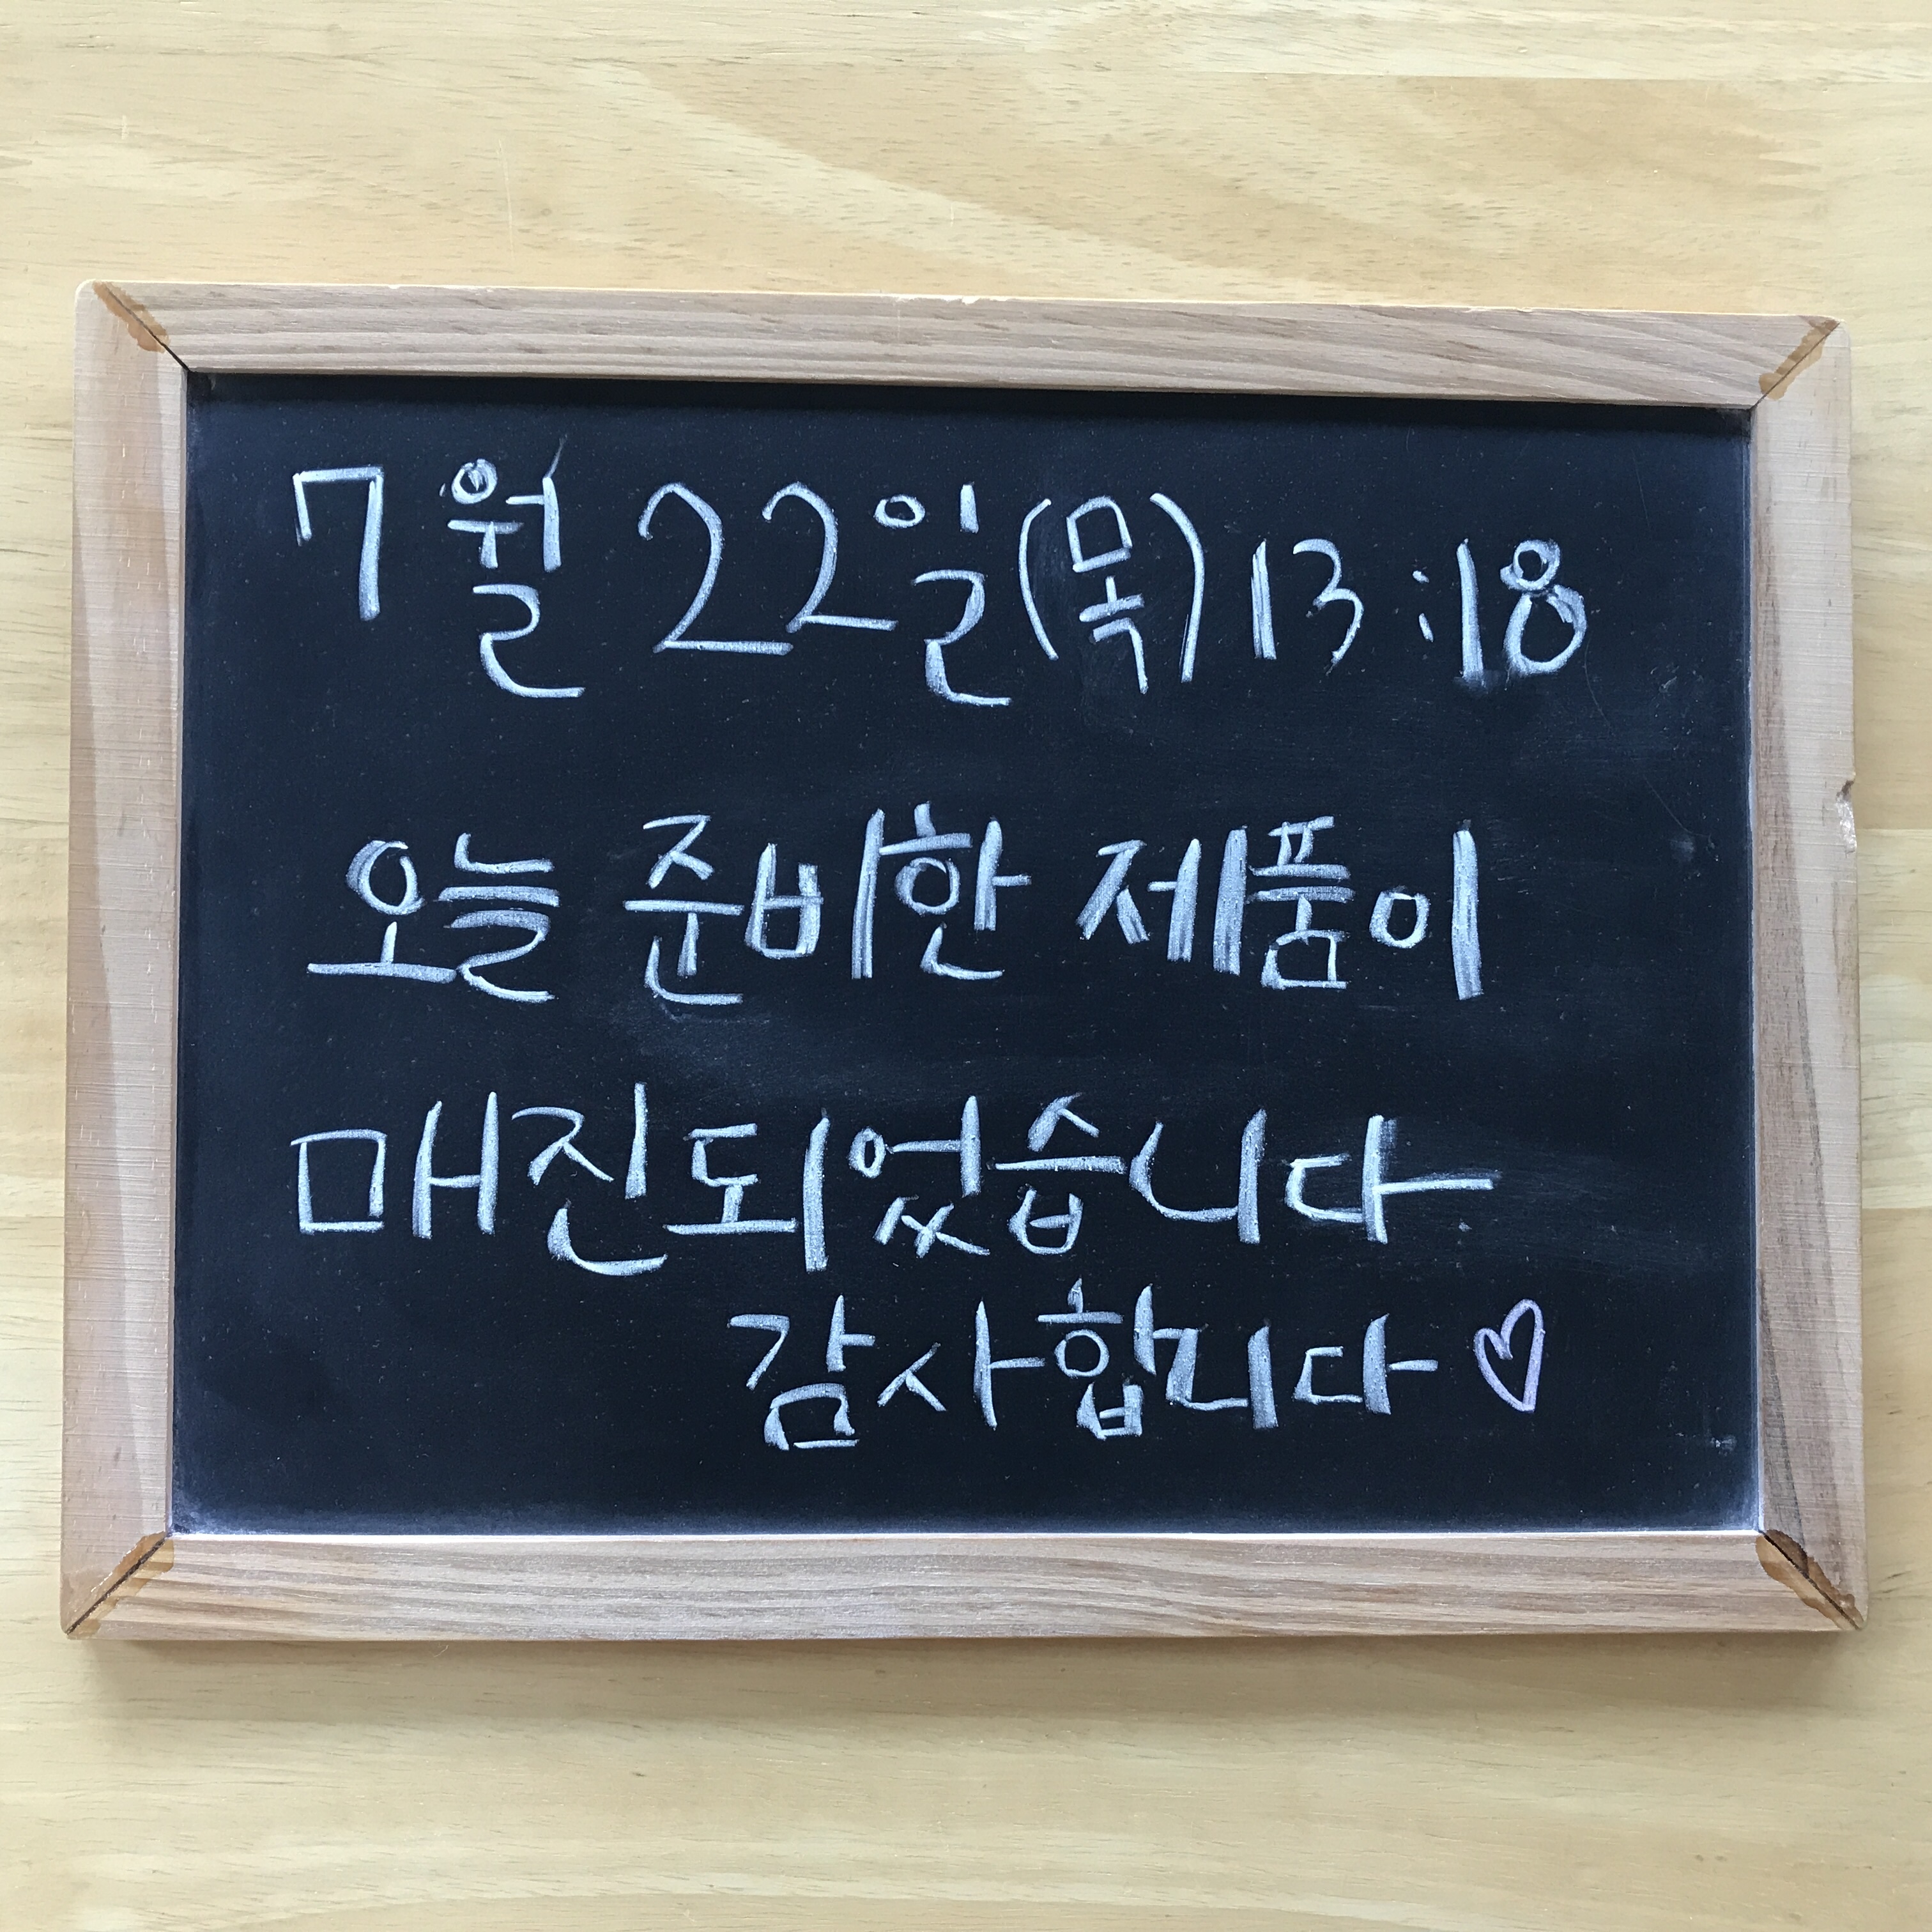 7월 22일(목) 13:18
오늘 준비한 제품이
매진되었습니다
감사합니다♡